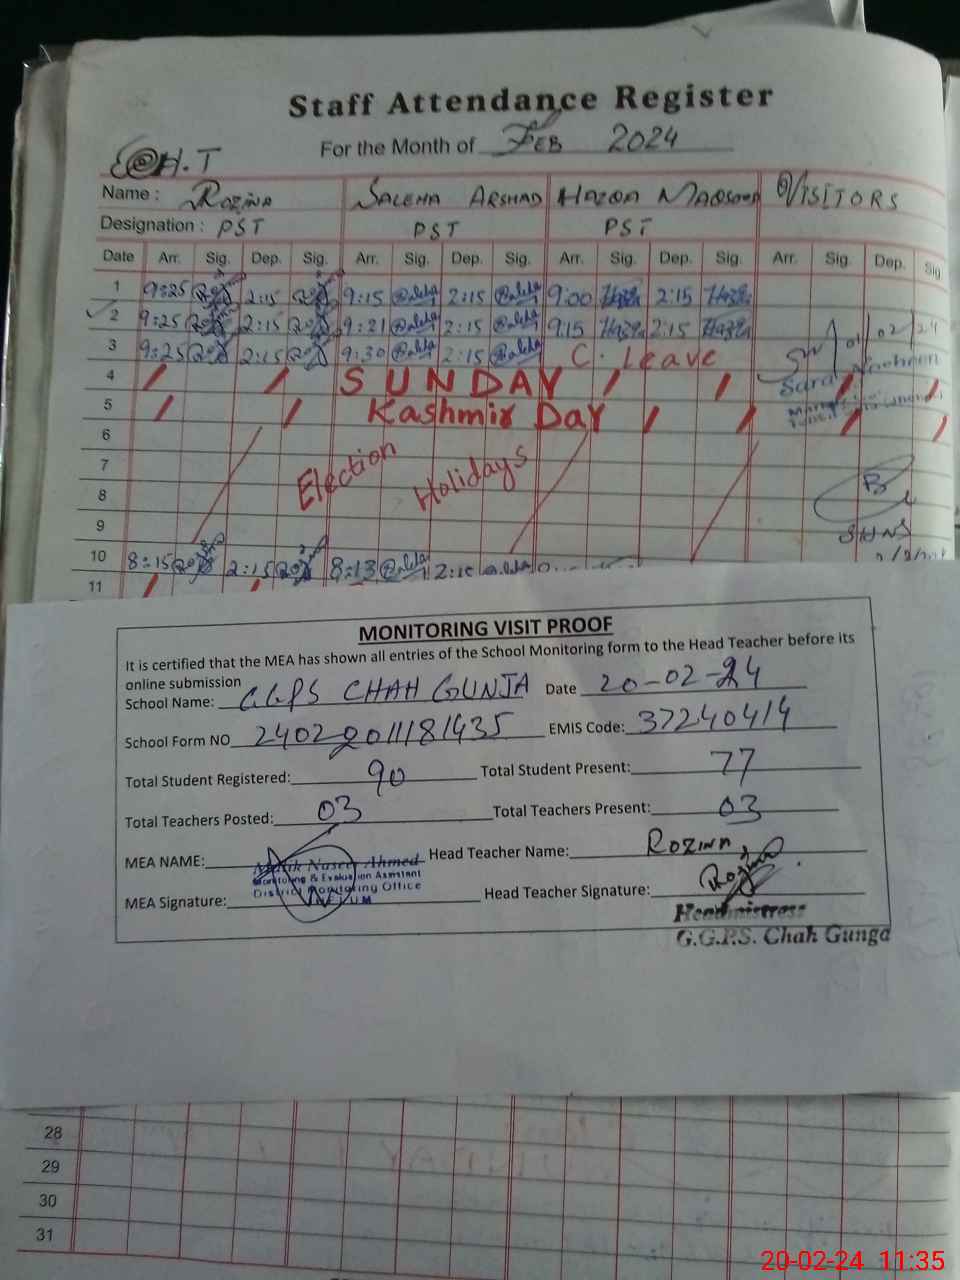 Staff Attendance Register
For the Month of FEB 2024
H.T
Name : ROZINA SALEHA ARSHAD HAZQA MAQSOOD VISITORS
Designation : PST PST PST
Date Arr. Sig. Dep. Sig. Arr. Sig. Dep. Sig. Arr. Sig. Dep. Sig. Arr. Sig. Dep. Sig
1 9:25 2:15 9:15 Saleha 2:15 Saleha 9:00 Hazqa 2:15 Hazqa
2 9:25 2:15 9:21 Saleha 2:15 Saleha 9:15 Hazqa 2:15 Hazqa
3 9:25 2:15 9:30 Saleha 2:15 Saleha C. Leave 01/02/24
4 SUNDAY
5 Kashmir Day
6
7 Election Holidays
8
9
10 8:15 2:15 8:13 Saleha 2:15 Saleha
11
MONITORING VISIT PROOF
It is certified that the MEA has shown all entries of the School Monitoring form to the Head Teacher before its
online submission
School Name: GGPS CHAH GUNJA Date 20-02-24
School Form NO 24022011181435 EMIS Code: 37240414
Total Student Registered: 90 Total Student Present: 77
Total Teachers Posted: 03 Total Teachers Present: 03
MEA NAME: Malik Naseer Ahmed Head Teacher Name: ROZINA
Monitoring & Evaluation Assistant
District Monitoring Office
MEA Signature: Head Teacher Signature: Rozina
JHELUM
Headmistress
G.G.P.S. Chah Gunga
28
29
30
31
20-02-24 11:35